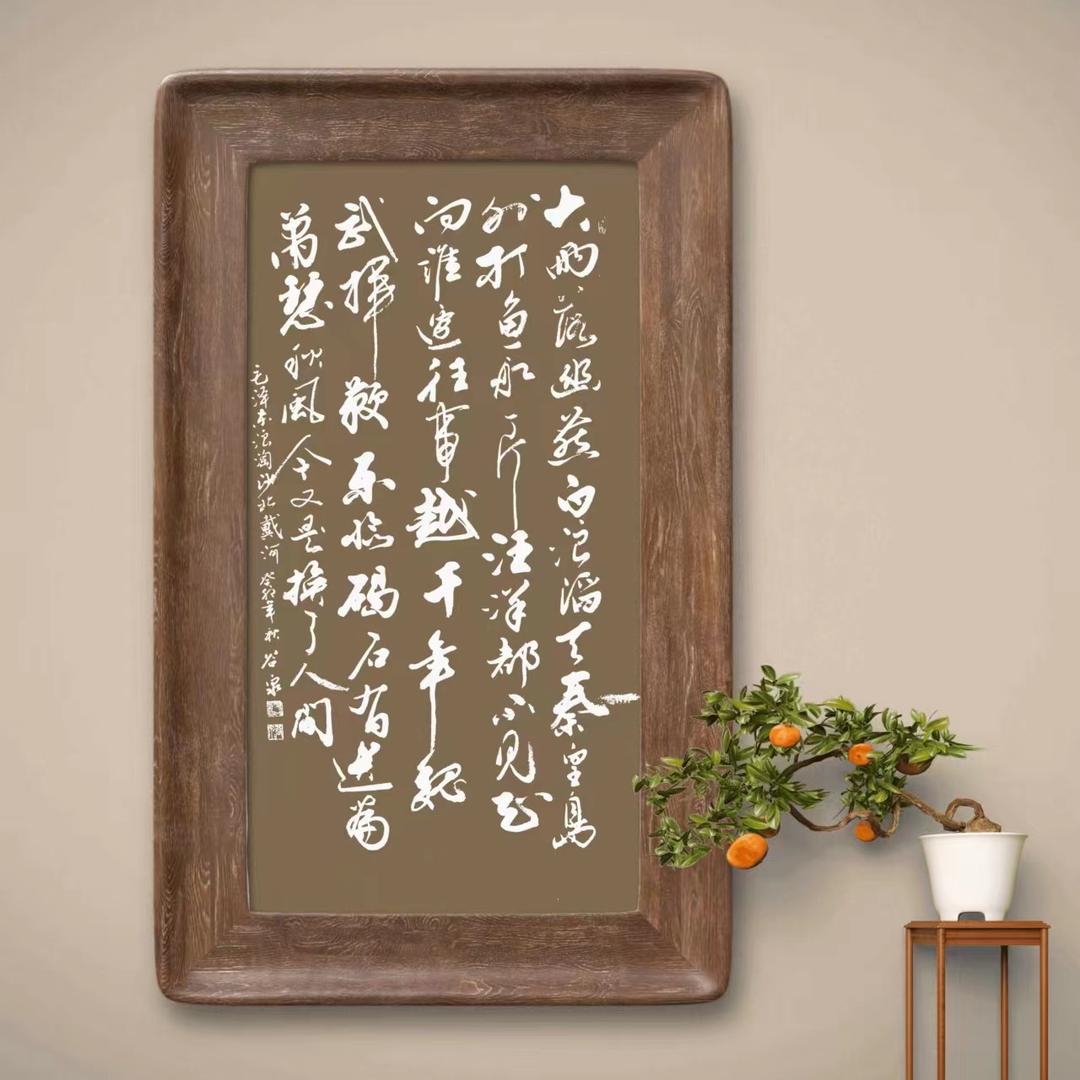 大雨落幽燕白浪滔天秦皇岛
外打鱼船一片汪洋都不见知
向谁边往事越千年魏
武挥鞭东临碣石有遗篇
萧瑟秋风今又是换了人间
毛泽东浪淘沙北戴河 癸卯年秋 谷泉